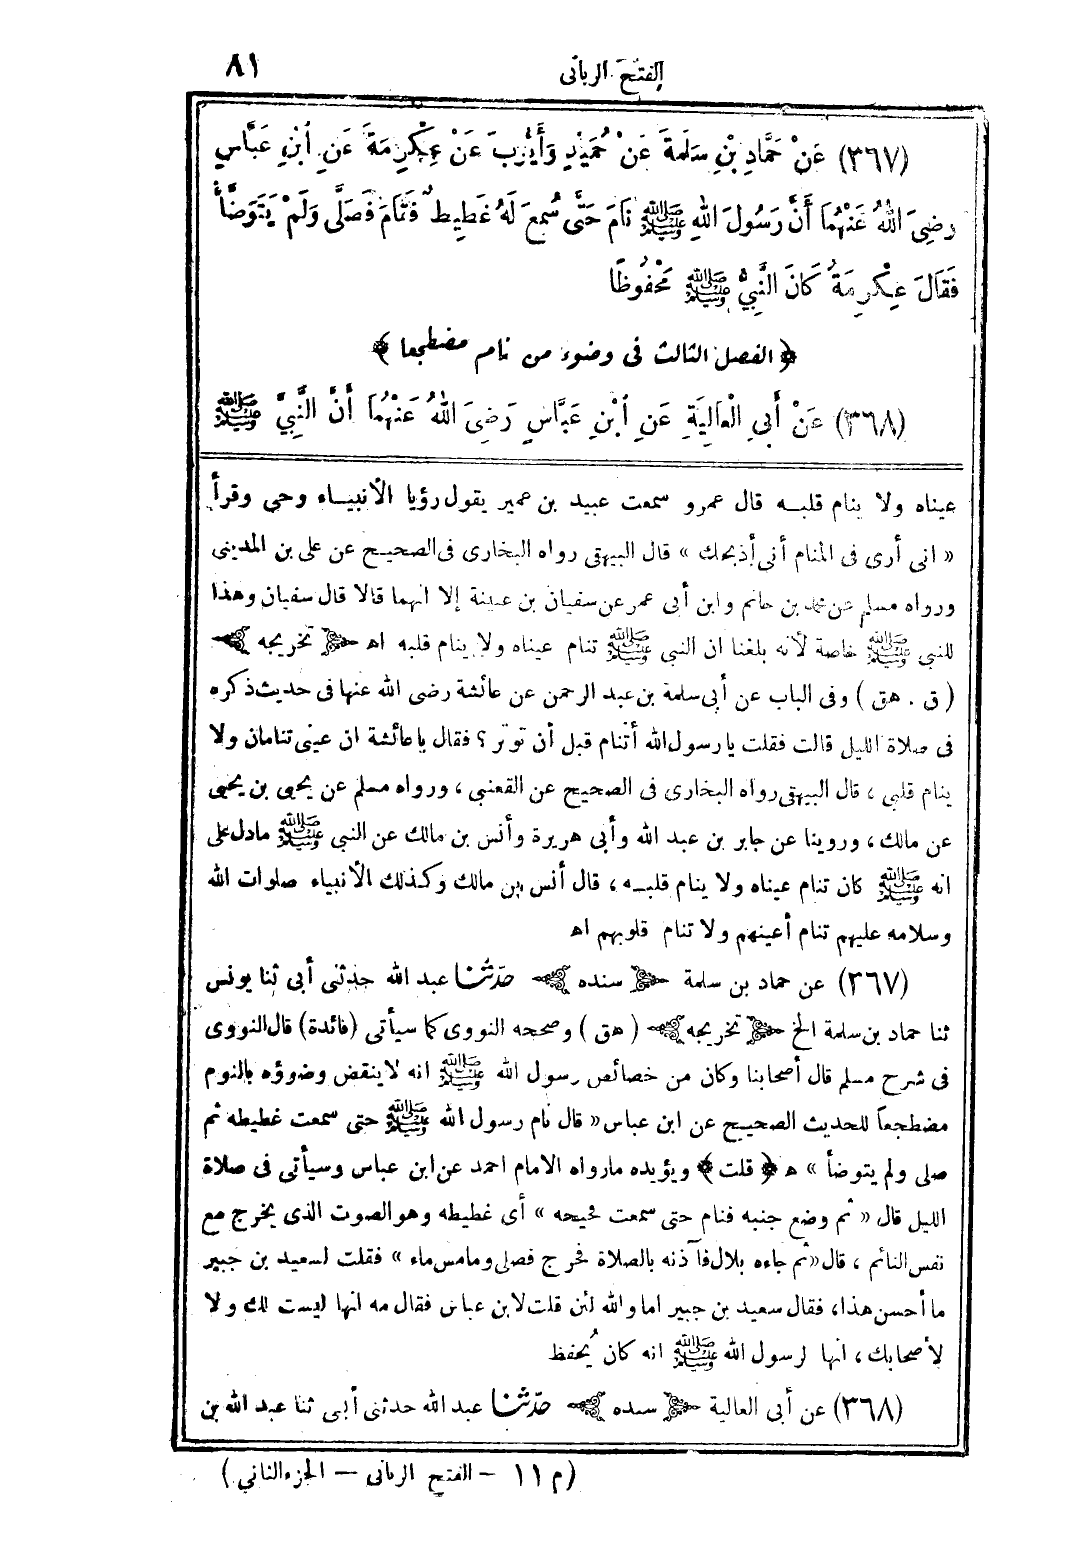 الفتح الربانى ٨١
(٣٦٧) عَنْ حَمَّادِ بْنِ سَلَمَةَ عَنْ حُمَيْدٍ وَأَيُّوبَ عَنْ عِكْرِمَةَ عَنِ ابْنِ عَبَّاسٍ
رَضِىَ اللهُ عَنْهُمَا أَنَّ رَسُولَ اللهِ ﷺ نَامَ حَتَّى سُمِعَ لَهُ غَطِيطٌ فَقَامَ فَصَلَّى وَلَمْ يَتَوَضَّأْ
فَقَالَ عِكْرِمَةُ كَانَ النَّبِيُّ ﷺ مَحْفُوظًا
﴿ الفصل الثالث فى وضوء من نام مضطجعا ﴾
(٣٦٨) عَنْ أَبِى الْعَالِيَةِ عَنِ ابْنِ عَبَّاسٍ رَضِىَ اللهُ عَنْهُمَا أَنَّ النَّبِيَّ ﷺ
عيناه ولا ينام قلبه قال عمرو سمعت عبيد بن عمير يقول رؤيا الأنبياء وحى وقرأ
« انى أرى فى المنام أنى أذبحك » قال البيهقى رواه البخارى فى الصحيح عن على بن المدينى
ورواه مسلم عن محمد بن حاتم وابن أبى عمر عن سفيان بن عيينة إلا انهما قالا قال سفيان وهذا
للنبى ﷺ خاصة لأنه بلغنا ان النبى ﷺ تنام عيناه ولا ينام قلبه اهـ ﴿ تخريجه ﴾
( ق . هق ) وفى الباب عن أبى سلمة بن عبد الرحمن عن عائشة رضى الله عنها فى حديث ذكره
فى صلاة الليل قالت فقلت يارسول الله أتنام قبل أن توتر ؟ فقال ياعائشة ان عينى تنامان ولا
ينام قلبى ، قال البيهقى رواه البخارى فى الصحيح عن القعنبى ، ورواه مسلم عن يحيى بن يحيى
عن مالك ، وروينا عن جابر بن عبد الله وأبى هريرة وأنس بن مالك عن النبى ﷺ مادل على
انه ﷺ كان تنام عيناه ولا ينام قلبه ، قال أنس بن مالك وكذلك الأنبياء صلوات الله
وسلامه عليهم تنام أعينهم ولا تنام قلوبهم اهـ
(٣٦٧) عن حماد بن سلمة ﴿ سنده ﴾ حدّثنا عبد الله حدثنى أبى ثنا يونس
ثنا حماد بن سلمة الخ ﴿ تخريجه ﴾ ( هق ) وصححه النووى كما سيأتى (فائدة) قال النووى
فى شرح مسلم قال أصحابنا وكان من خصائص رسول الله ﷺ انه لاينقض وضوؤه بالنوم
مضطجعاً للحديث الصحيح عن ابن عباس « قال نام رسول الله ﷺ حتى سمعت غطيطه ثم
صلى ولم يتوضأ » اهـ ﴿ قلت ﴾ ويؤيده مارواه الامام احمد عن ابن عباس وسيأتى فى صلاة
الليل قال « ثم وضع جنبه فنام حتى سمعت فخيخه » أى غطيطه وهو الصوت الذى يخرج مع
نفس النائم ، قال « ثم جاءه بلال فآذنه بالصلاة فخرج فصلى ومامس ماء » فقلت لسعيد بن جبير
ما أحسن هذا ، فقال سعيد بن جبير اما والله لئن قلت لابن عباس فقال مه انها ليست لك ولا
لأصحابك ، انها لرسول الله ﷺ انه كان يُحفظ
(٣٦٨) عن أبى العالية ﴿ سنده ﴾ حدّثنا عبد الله حدثنى أبى ثنا عبد الله بن
(م ١١ — الفتح الربانى — الجزء الثانى)